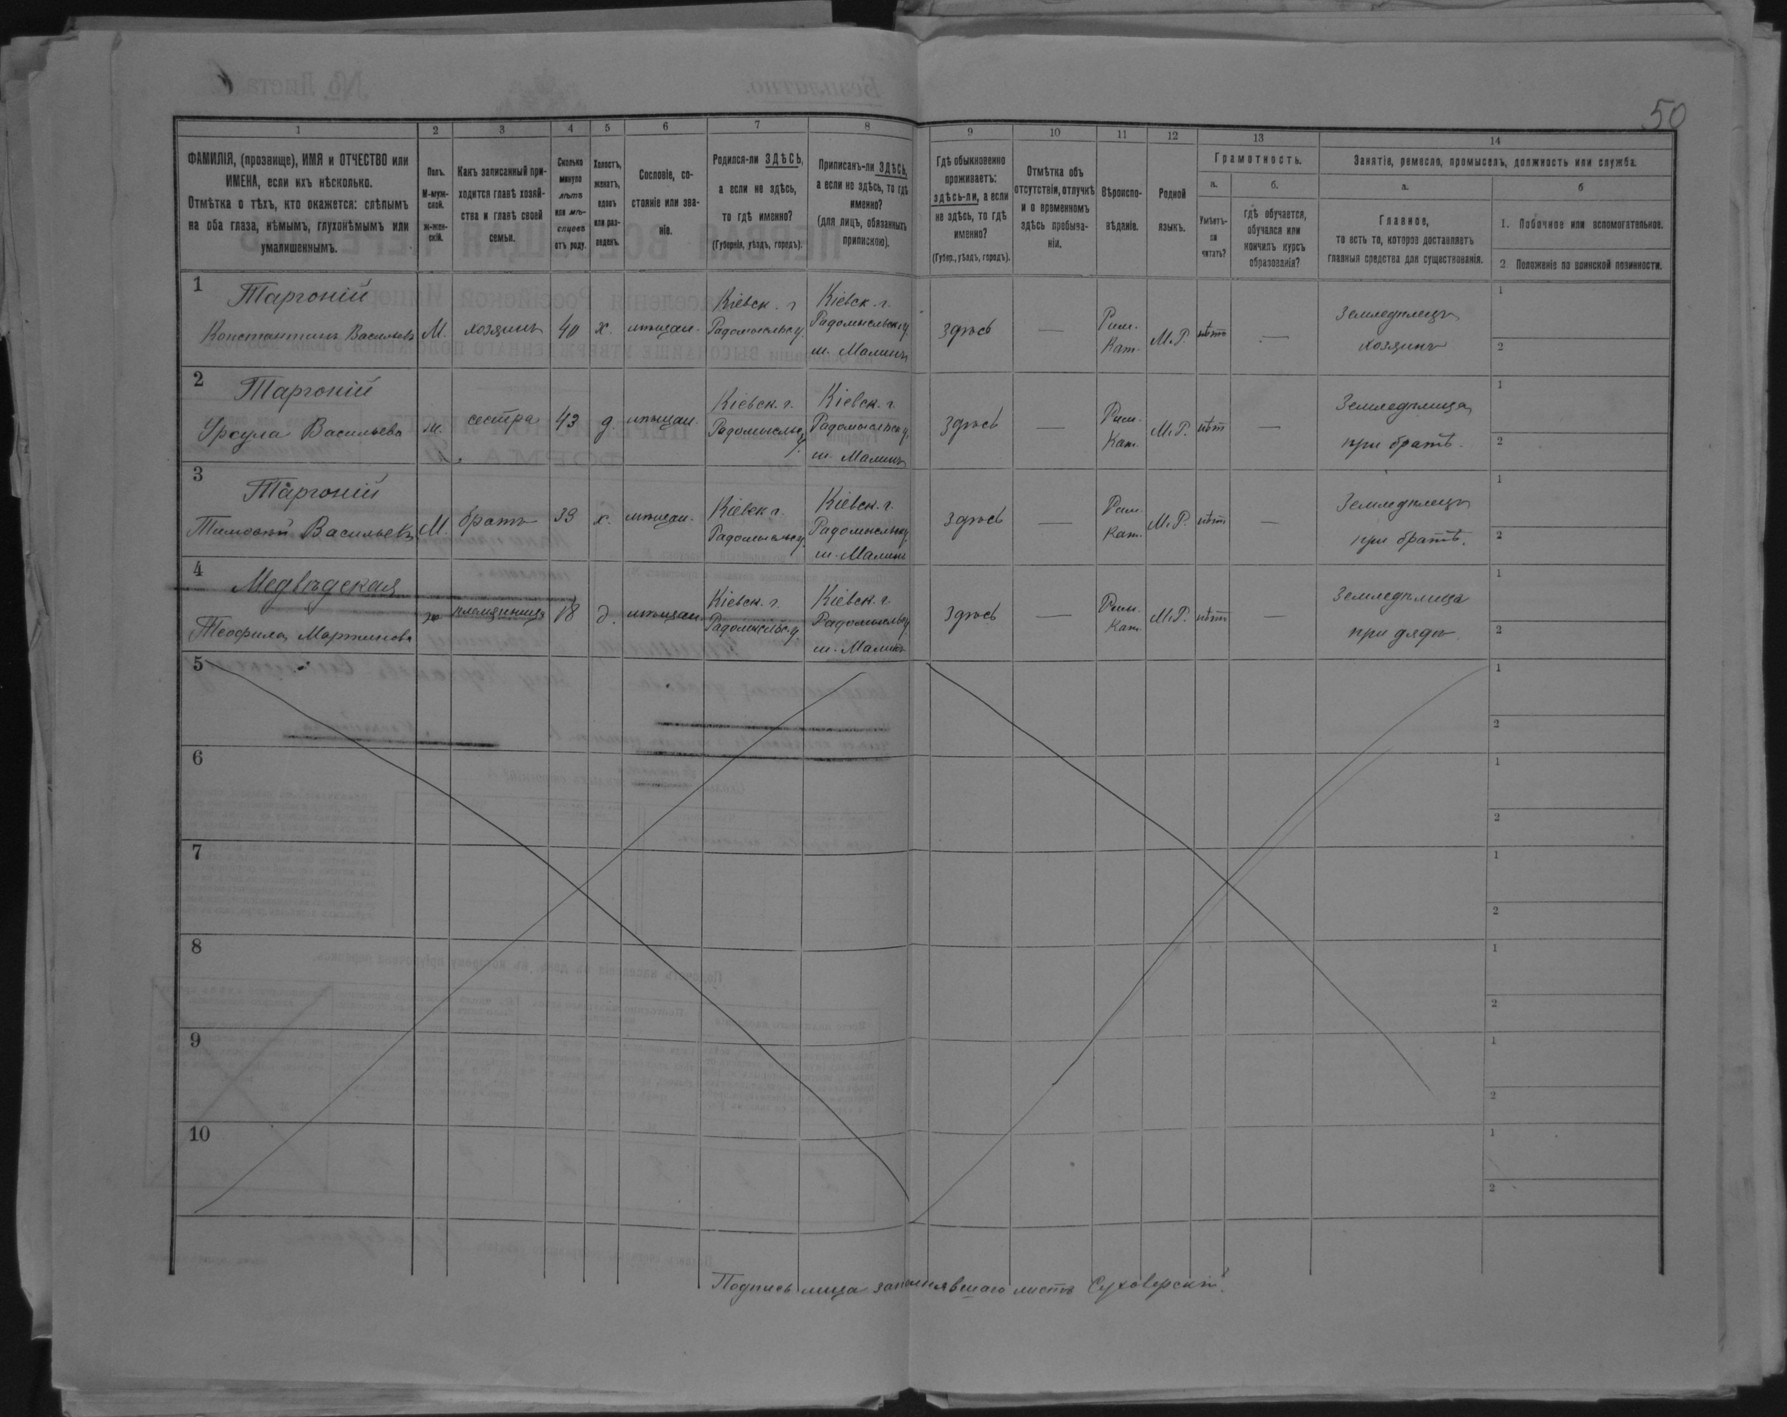 50
1 2 3 4 5 6 7 8 9 10 11 12 13 14
ФАМИЛІЯ, (прозвище), ИМЯ и ОТЧЕСТВО или
ИМЕНА, если ихъ нѣсколько.
Отмѣтка о тѣхъ, кто окажется: слѣпымъ
на оба глаза, нѣмымъ, глухонѣмымъ или
умалишеннымъ.
Полъ.
М-муж-
ской.
ж-жен-
скій.
Какъ записанный при-
ходится главѣ хозяй-
ства и главѣ своей
семьи.
Сколько
минуло
лѣтъ
или мѣ-
сяцевъ
отъ роду.
Холостъ,
женатъ,
вдовъ
или раз-
веденъ.
Сословіе, со-
стояніе или зва-
ніе.
Родился-ли ЗДѢСЬ,
а если не здѣсь,
то гдѣ именно?
(Губернія, уѣздъ, городъ).
Приписанъ-ли ЗДѢСЬ,
а если не здѣсь, то гдѣ
именно?
(для лицъ, обязанныхъ
припискою).
Гдѣ обыкновенно
проживаетъ:
здѣсь-ли, а если
не здѣсь, то гдѣ
именно?
(Губер., уѣздъ, городъ).
Отмѣтка объ
отсутствіи, отлучкѣ
и о временномъ
здѣсь пребыва-
ніи.
Вѣроиспо-
вѣданіе.
Родной
языкъ.
Грамотность.
а.
Умѣетъ-
ли
читать?
б.
гдѣ обучается,
обучался или
кончилъ курсъ
образованія?
Занятіе, ремесло, промыселъ, должность или служба.
а.
Главное,
то есть то, которое доставляетъ
главныя средства для существованія.
б
1. Побочное или вспомогательное.
2 Положеніе по воинской повинности.
1
Таргоній
Константинъ Васильевъ
М. хозяинъ 40 х. мѣщан.
Кіевск. г
Радомысльск у.
Кіевск. г.
Радомысльск у.
м. Малинъ
здѣсь —
Рим.
Кат.
М.Р. нѣтъ —
Земледѣлецъ
хозяинъ
1
2
2
Таргоній
Урсула Васильева
сестра 43 д. мѣщан.
Кіевск. г.
Радомысльск
у.
Кіевск. г.
Радомысльск у.
м. Малинъ
здѣсь —
Рим.
Кат.
М.Р. нѣт —
Земледѣлица
при братѣ.
1
2
3
Таргоній
Тимофей Васильевъ
М. братъ 39 х. мѣщан.
Кіевск г.
Радомысльск у.
Кіевск. г.
Радомысльск у.
м. Малинъ
здѣсь —
Рим.
Кат.
М.Р. нѣт —
Земледѣлецъ
при братѣ.
1
2
4
Медвѣдская
Теофила Мартинова
ж племянница 18 д. мѣщан.
Кіевск. г.
Радомысльск у.
Кіевск. г.
Радомысльск у.
м. Малинъ
здѣсь —
Рим.
Кат.
М.Р. нѣт —
Земледѣлица
при дядѣ.
1
2
5
1
2
6
1
2
7
1
2
8
1
2
9
1
2
10
1
2
Подпись лица заполнявшаго листъ Суховерскій.